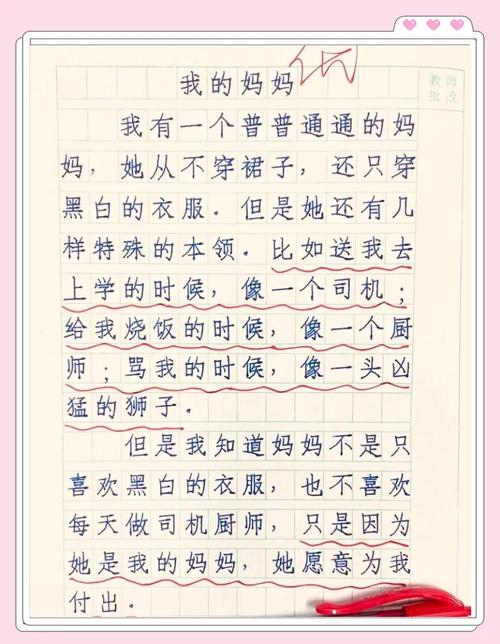 我的妈妈
教师
批改
我有一个普普通通的妈
妈，她从不穿裙子，还只穿
黑白的衣服．但是她还有几
样特殊的本领．比如送我去
上学的时候，像一个司机；
给我烧饭的时候，像一个厨
师；骂我的时候，像一头凶
猛的狮子．
但是我知道妈妈不是只
喜欢黑白的衣服，也不喜欢
每天做司机厨师，只是因为
她是我的妈妈，她愿意为我
付出．